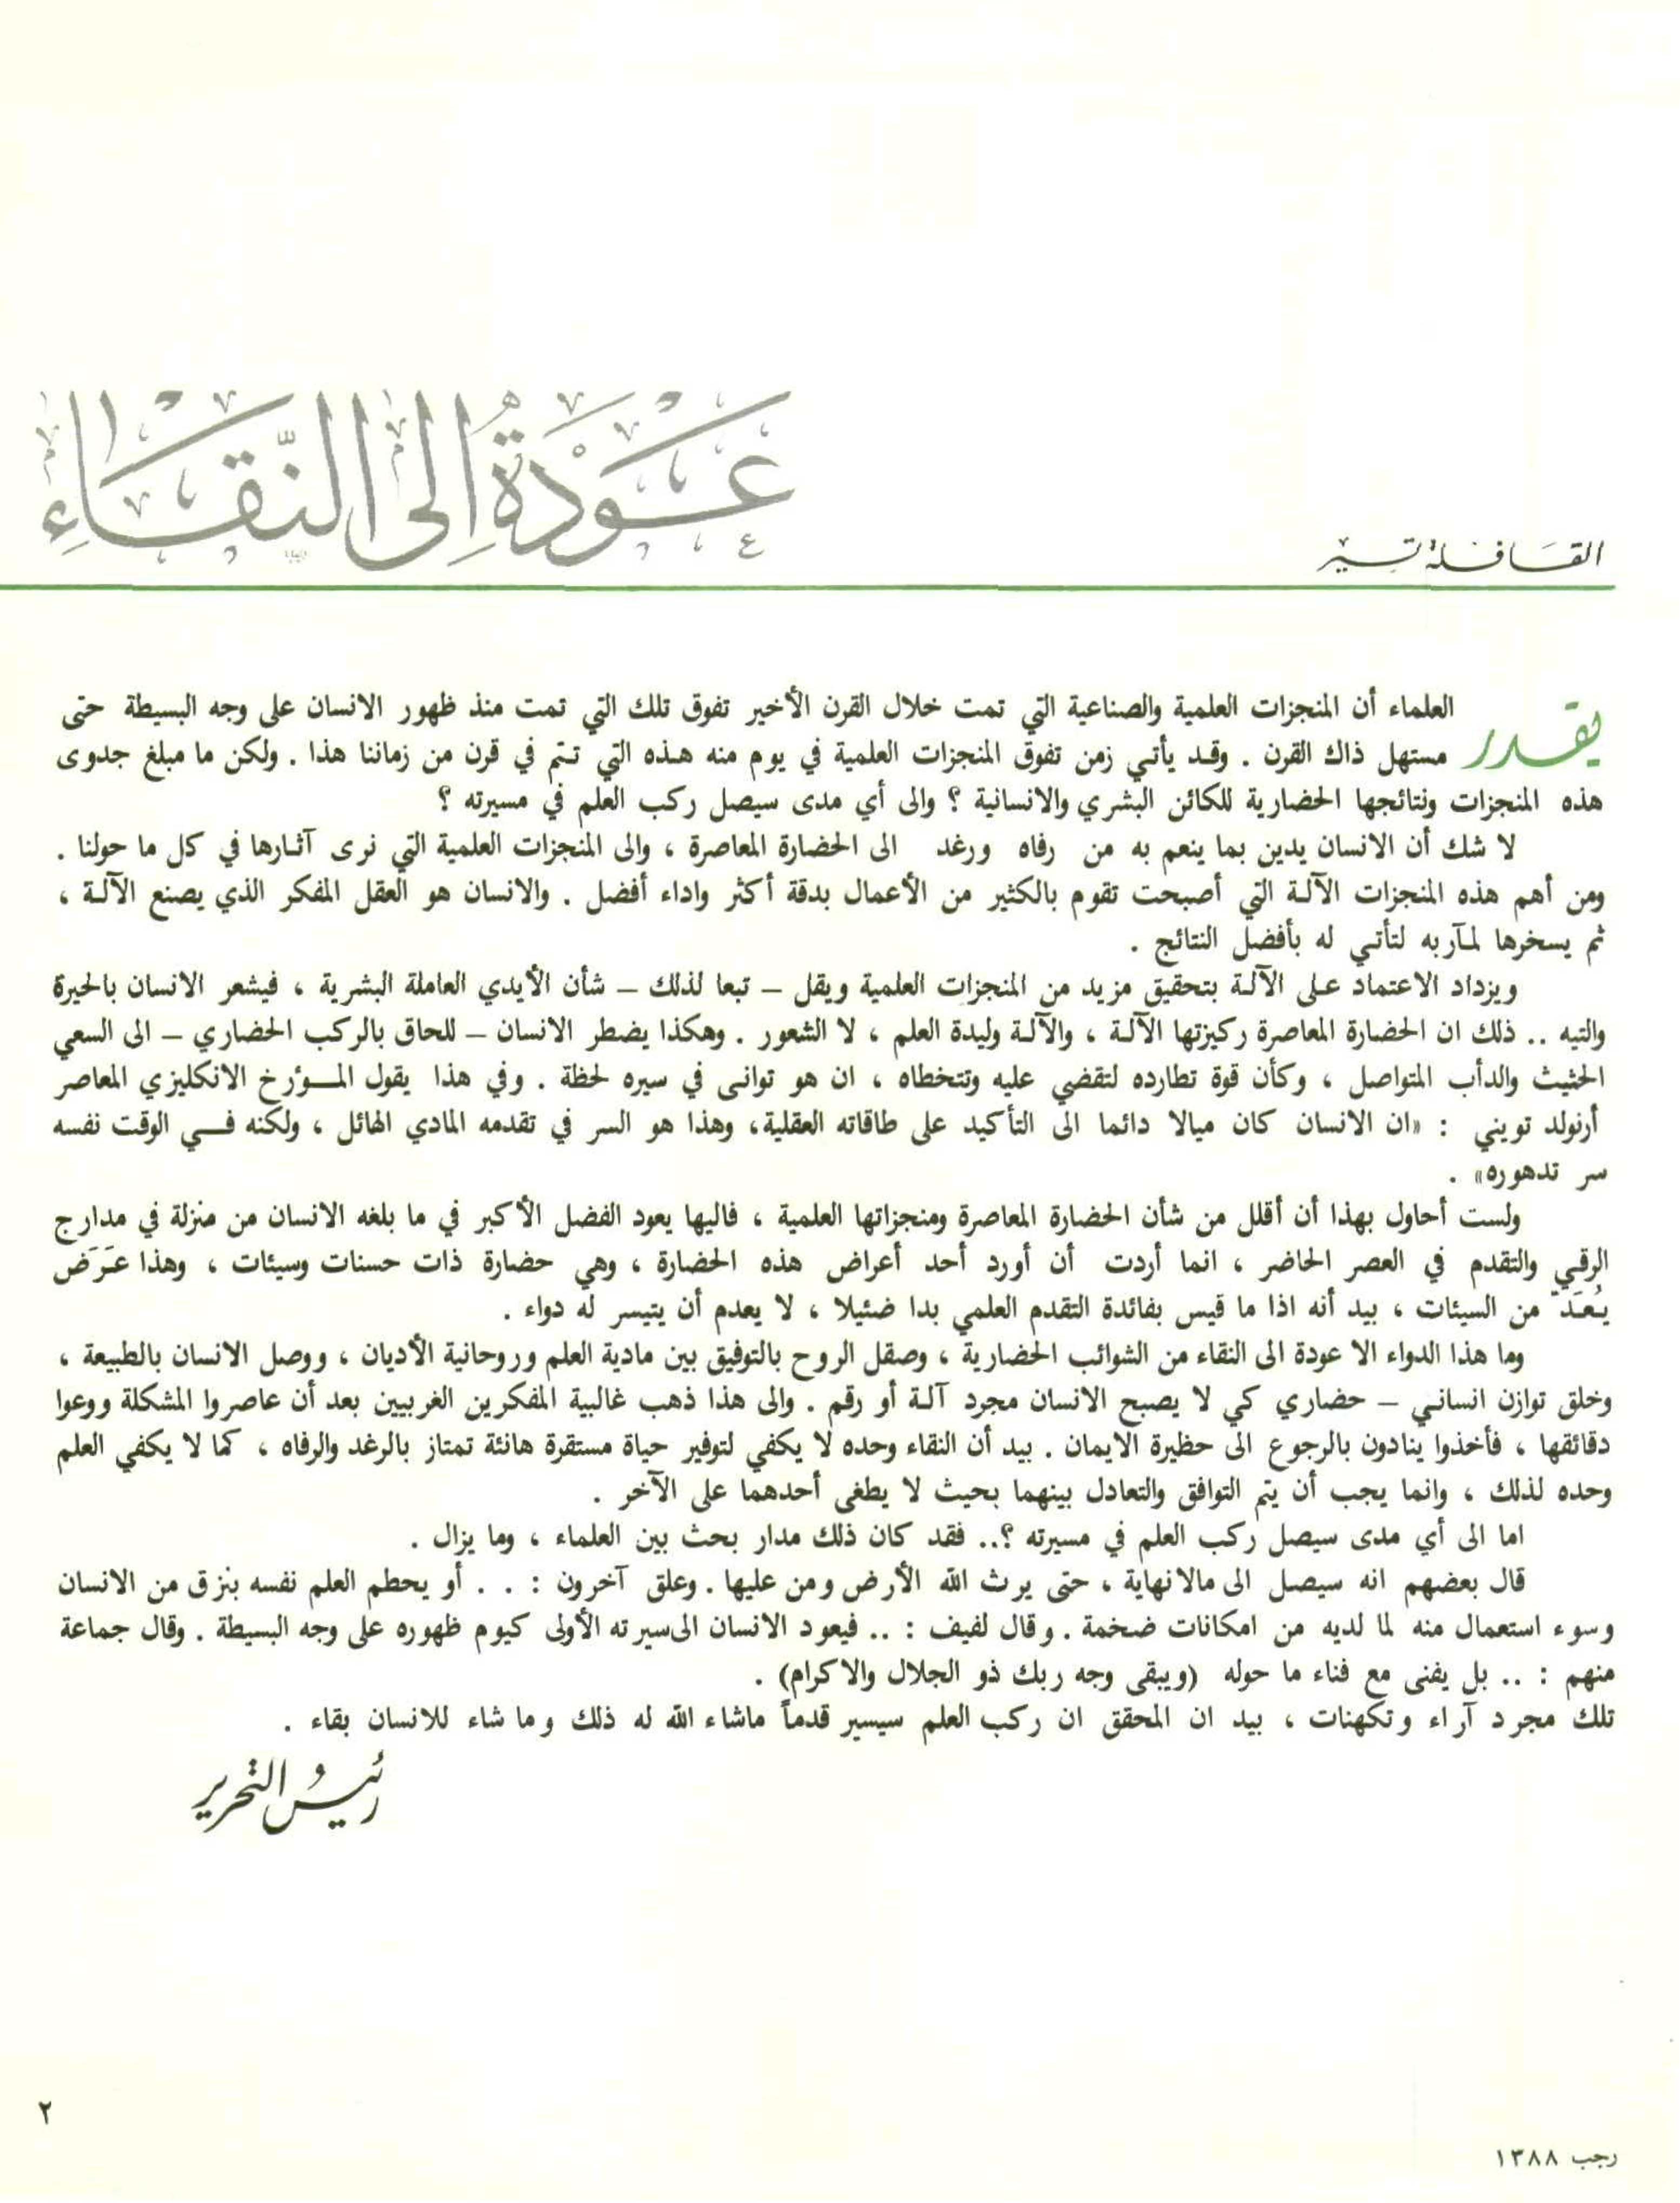 عَوْدَةٌ إِلى النَّقَاءِ
القَافلة تسير
يقدر العلماء أن المنجزات العلمية والصناعية التي تمت خلال القرن الأخير تفوق تلك التي تمت منذ ظهور الانسان على وجه البسيطة حتى
مستهل ذاك القرن . وقد يأتي زمن تفوق المنجزات العلمية في يوم منه هذه التي تتم في قرن من زماننا هذا . ولكن ما مبلغ جدوى
هذه المنجزات ونتائجها الحضارية للكائن البشري والانسانية ؟ والى أي مدى سيصل ركب العلم في مسيرته ؟
لا شك أن الانسان يدين بما ينعم به من رفاه ورغد الى الحضارة المعاصرة ، والى المنجزات العلمية التي نرى آثارها في كل ما حولنا .
ومن أهم هذه المنجزات الآلة التي أصبحت تقوم بالكثير من الأعمال بدقة أكثر واداء أفضل . والانسان هو العقل المفكر الذي يصنع الآلة ،
ثم يسخرها لمآربه لتأتي له بأفضل النتائج .
ويزداد الاعتماد على الآلة بتحقيق مزيد من المنجزات العلمية ويقل – تبعا لذلك – شأن الأيدي العاملة البشرية ، فيشعر الانسان بالحيرة
والتيه .. ذلك ان الحضارة المعاصرة ركيزتها الآلة ، والآلة وليدة العلم ، لا الشعور . وهكذا يضطر الانسان – للحاق بالركب الحضاري – الى السعي
الحثيث والدأب المتواصل ، وكأن قوة تطارده لتقضي عليه وتتخطاه ، ان هو توانى في سيره لحظة . وفي هذا يقول المؤرخ الانكليزي المعاصر
أرنولد تويني : «ان الانسان كان ميالا دائما الى التأكيد على طاقاته العقلية، وهذا هو السر في تقدمه المادي الهائل ، ولكنه في الوقت نفسه
سر تدهوره» .
ولست أحاول بهذا أن أقلل من شأن الحضارة المعاصرة ومنجزاتها العلمية ، فاليها يعود الفضل الأكبر في ما بلغه الانسان من منزلة في مدارج
الرقي والتقدم في العصر الحاضر ، انما أردت أن أورد أحد أعراض هذه الحضارة ، وهي حضارة ذات حسنات وسيئات ، وهذا عَرَض
يُعَدّ من السيئات ، بيد أنه اذا ما قيس بفائدة التقدم العلمي بدا ضئيلا ، لا يعدم أن يتيسر له دواء .
وما هذا الدواء الا عودة الى النقاء من الشوائب الحضارية ، وصقل الروح بالتوفيق بين مادية العلم وروحانية الأديان ، ووصل الانسان بالطبيعة ،
وخلق توازن انساني – حضاري كي لا يصبح الانسان مجرد آلة أو رقم . والى هذا ذهب غالبية المفكرين الغربيين بعد أن عاصروا المشكلة ووعوا
دقائقها ، فأخذوا ينادون بالرجوع الى حظيرة الايمان . بيد أن النقاء وحده لا يكفي لتوفير حياة مستقرة هانئة تمتاز بالرغد والرفاه ، كما لا يكفي العلم
وحده لذلك ، وانما يجب أن يتم التوافق والتعادل بينهما بحيث لا يطغى أحدهما على الآخر .
اما الى أي مدى سيصل ركب العلم في مسيرته ؟.. فقد كان ذلك مدار بحث بين العلماء ، وما يزال .
قال بعضهم انه سيصل الى مالانهاية ، حتى يرث الله الأرض ومن عليها . وعلق آخرون : . . أو يحطم العلم نفسه بنزق من الانسان
وسوء استعمال منه لما لديه من امكانات ضخمة . وقال لفيف : .. فيعود الانسان الى سيرته الأولى كيوم ظهوره على وجه البسيطة . وقال جماعة
منهم : .. بل يفنى مع فناء ما حوله (ويبقى وجه ربك ذو الجلال والاكرام) .
تلك مجرد آراء وتكهنات ، بيد ان المحقق ان ركب العلم سيسير قدماً ماشاء الله له ذلك وما شاء للانسان بقاء .
رئيسُ التحرير
٢
رجب ١٣٨٨